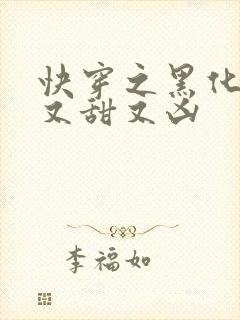 快穿之黑化
又甜又凶
李福如